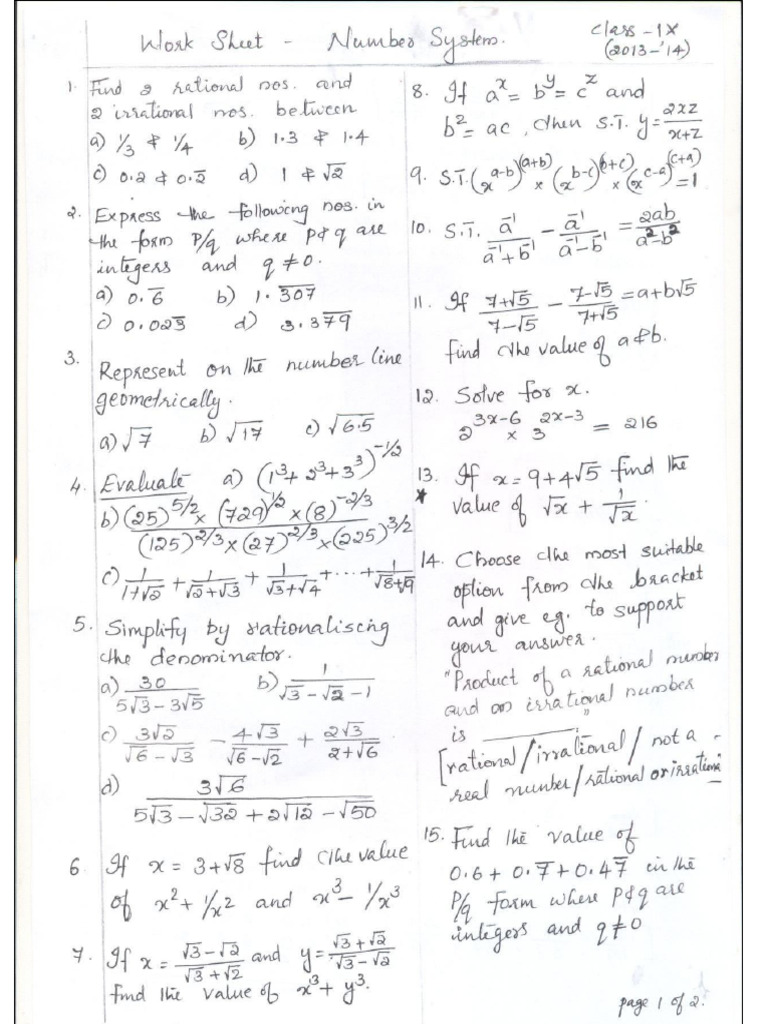 Work Sheet - Number System.
Class - IX
(2013-'14)
1. Find 2 rational nos. and
2 irrational nos. between
a) 1/3 & 1/4 b) 1.3 & 1.4
c) 0.2 & 0.2̅ d) 1 & √2
2. Express the following nos. in
the form P/q where p & q are
integers and q ≠ 0.
a) 0.6̅ b) 1.3̅0̅7̅
c) 0.023̅ d) 3.37̅9̅
3. Represent on the number line
geometrically.
a) √7 b) √17 c) √6.5
4. Evaluate a) (1³ + 2³ + 3³)^(-1/2)
b) (25)^(5/2) × (729)^(1/2) × (8)^(-2/3)
/ (125)^(2/3) × (27)^(2/3) × (225)^(3/2)
c) 1/(1+√2) + 1/(√2+√3) + 1/(√3+√4) + ... + 1/(√8+√9)
5. Simplify by rationaliscing
the denominator.
a) 30/(5√3 - 3√5) b) 1/(√3 - √2 - 1)
c) 3√2/(√6 - √3) - 4√3/(√6 - √2) + 2√3/(2 + √6)
d) 3√6
/ 5√3 - √32 + 2√12 - √50
6. If x = 3 + √8 find the value
of x² + 1/x² and x³ - 1/x³
7. If x = (√3 - √2)/(√3 + √2) and y = (√3 + √2)/(√3 - √2)
find the value of x³ + y³.
8. If a^x = b^y = c^z and
b² = ac, then S.T. y = 2xz/(x+z)
9. S.T. (x^(a-b))^(a+b) × (x^(b-c))^(b+c) × (x^(c-a))^(c+a) = 1
10. S.T. a⁻¹/(a⁻¹ + b⁻¹) - a⁻¹/(a⁻¹ - b⁻¹) = 2ab/(a² - b²)
11. If (7+√5)/(7-√5) - (7-√5)/(7+√5) = a + b√5
find the value of a & b.
12. Solve for x.
2^(3x-6) × 3^(2x-3) = 216
13. If x = 9 + 4√5 find the
* value of √x + 1/√x.
14. Choose the most suitable
option from the bracket
and give eg. to support
your answer.
"Product of a rational number
and an irrational number
is ________"
[rational/irrational/not a
real number/rational or irrational
15. Find the value of
0.6 + 0.7̅ + 0.47̅ in the
P/q form where p & q are
integers and q ≠ 0
page 1 of 2.